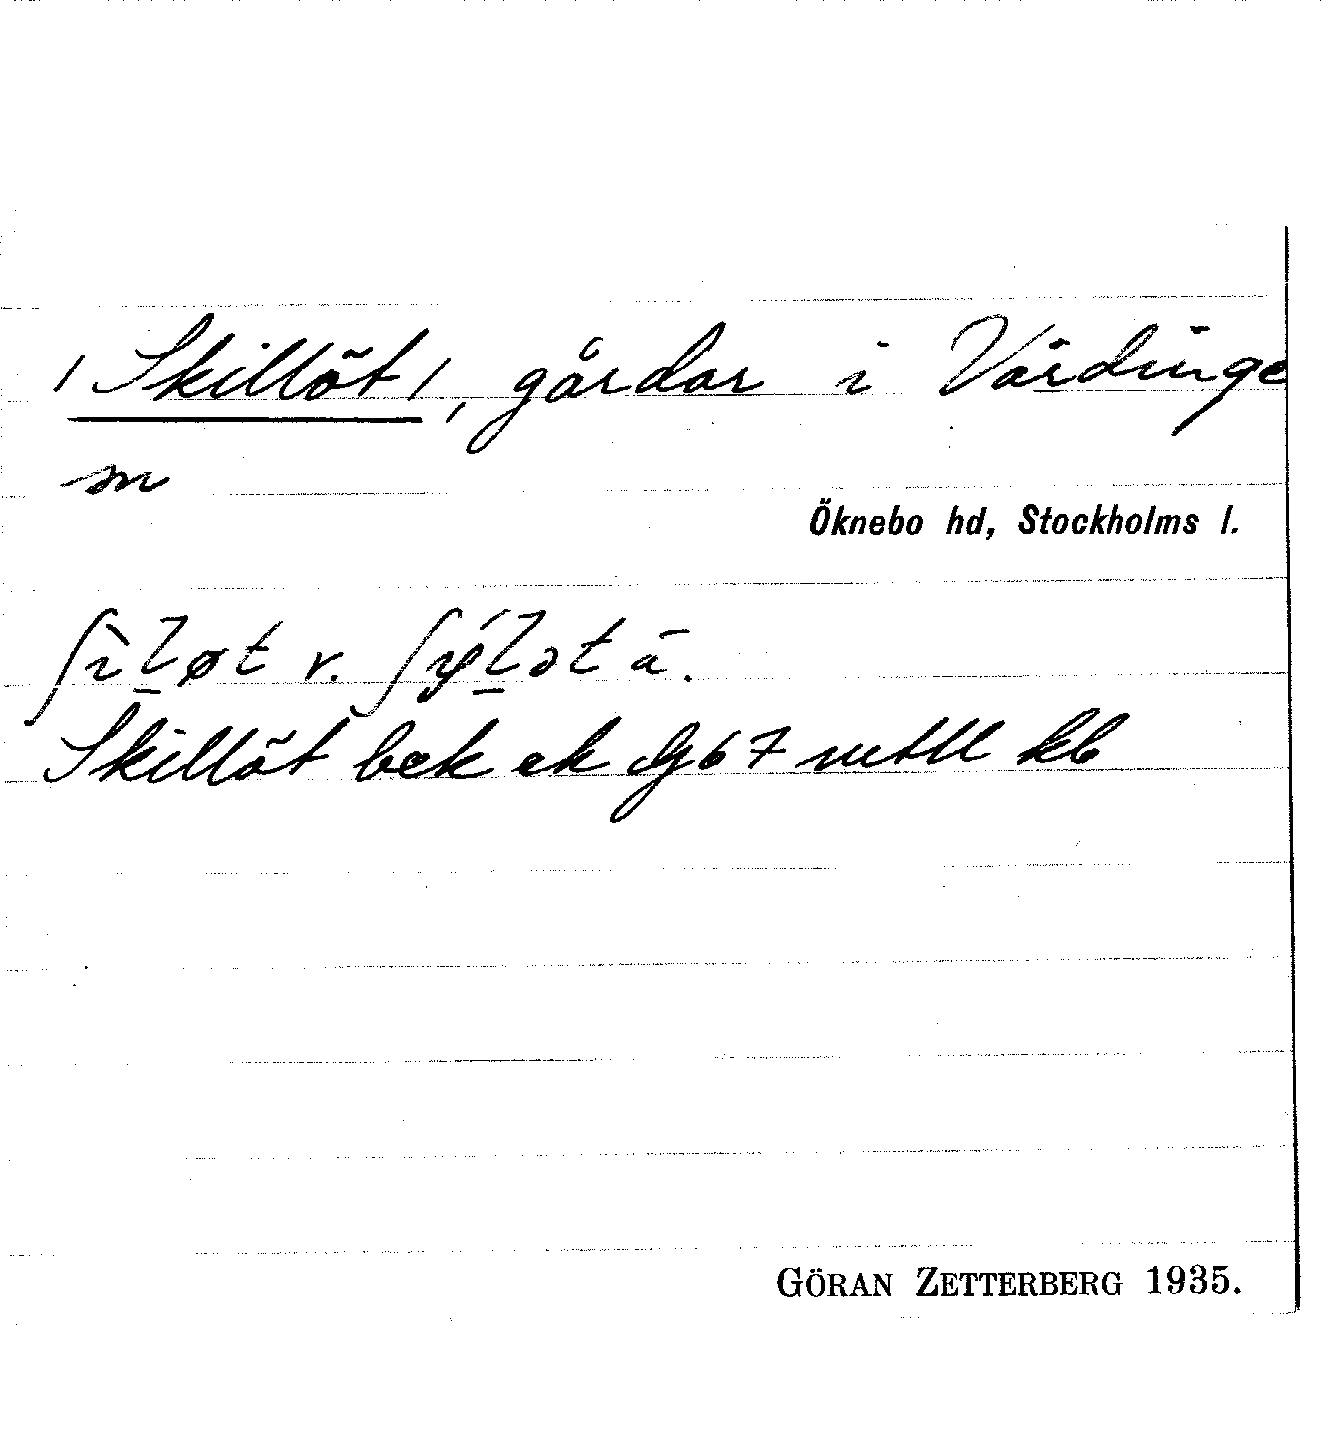 /Skillöt/, gårdar i Vårdinge
sn
Öknebo hd, Stockholms l.
ʃìløt v. ʃýlət ä.
Skillöt bek ek Gb 7 kb
GÖRAN ZETTERBERG 1935.